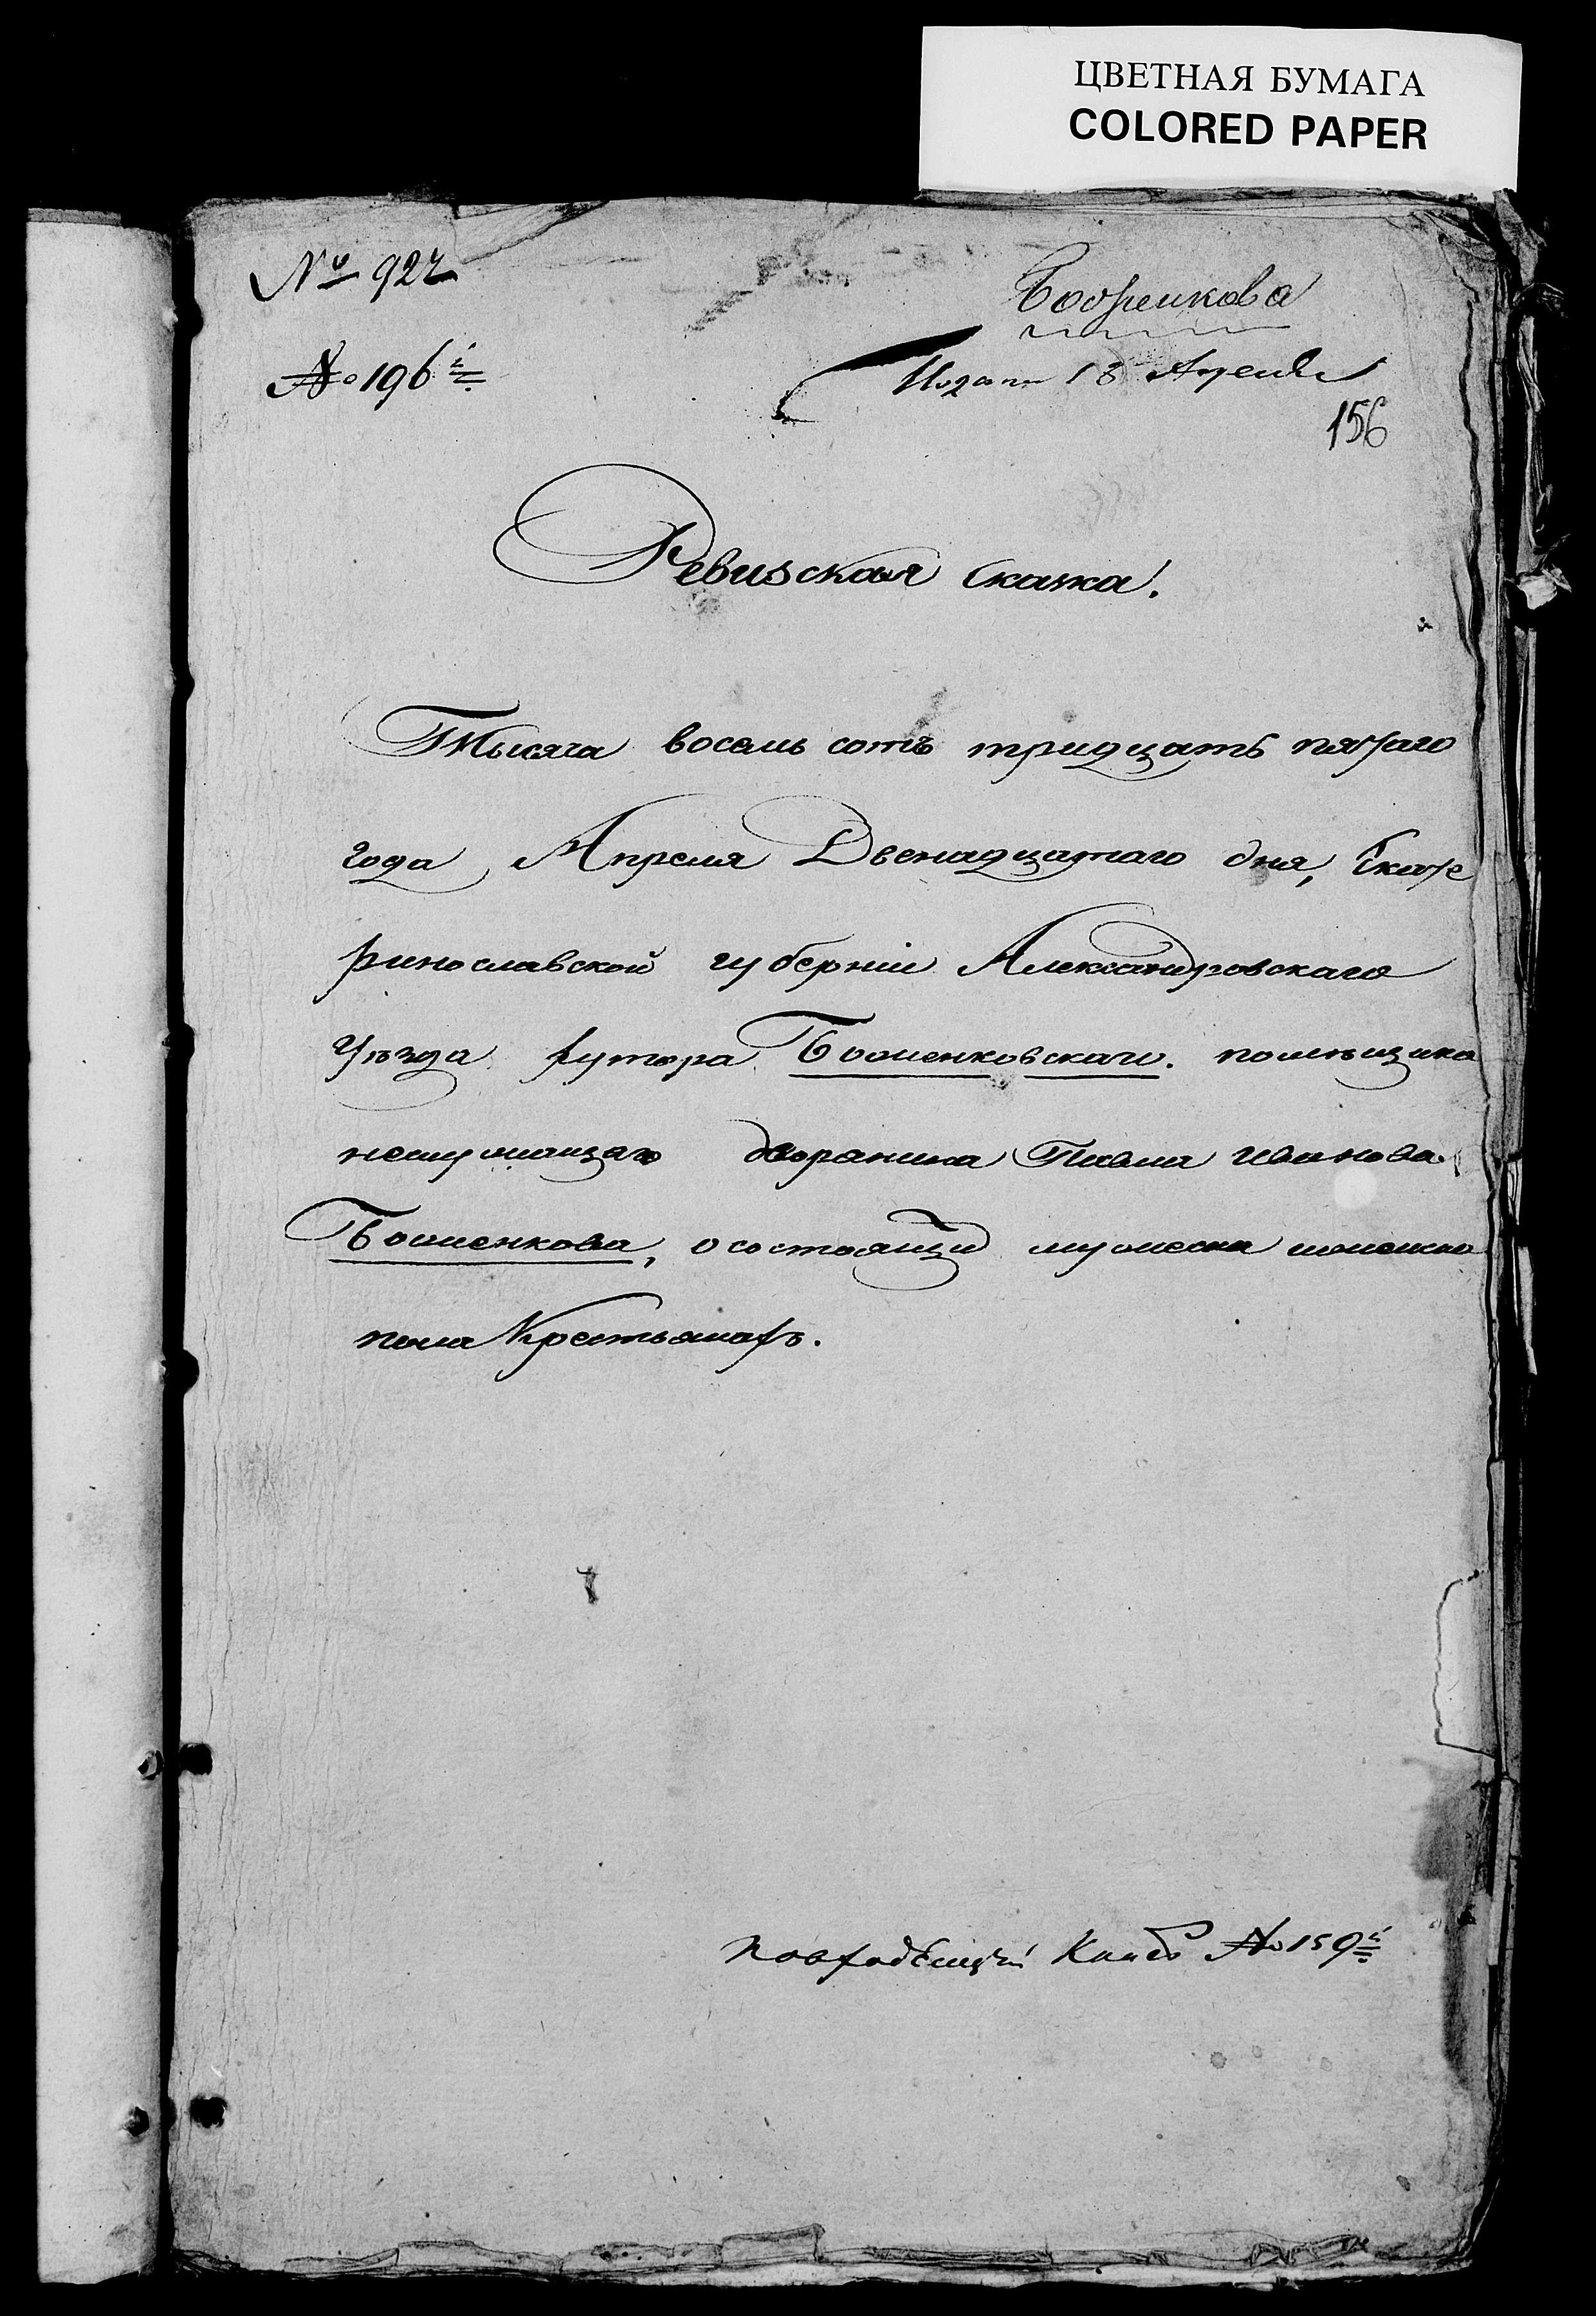 ЦВЕТНАЯ БУМАГА
COLORED PAPER
№ 922
№ 196й
Подан 18 Апреля
156
Ревизская Сказка.
Тысяча восемь сотъ тридцать пятаго
года Апреля Двенадцатаго дня, Екате
ринославской губерніи Александровскаго
Уѣзда хутора Боженковскаго. помѣщика
неслужащаго дворянина Павла Иванова
Боженкова, о состоящих мужеска и женска
пола Крестьянахъ.
Повходящей Книгѣ № 159й